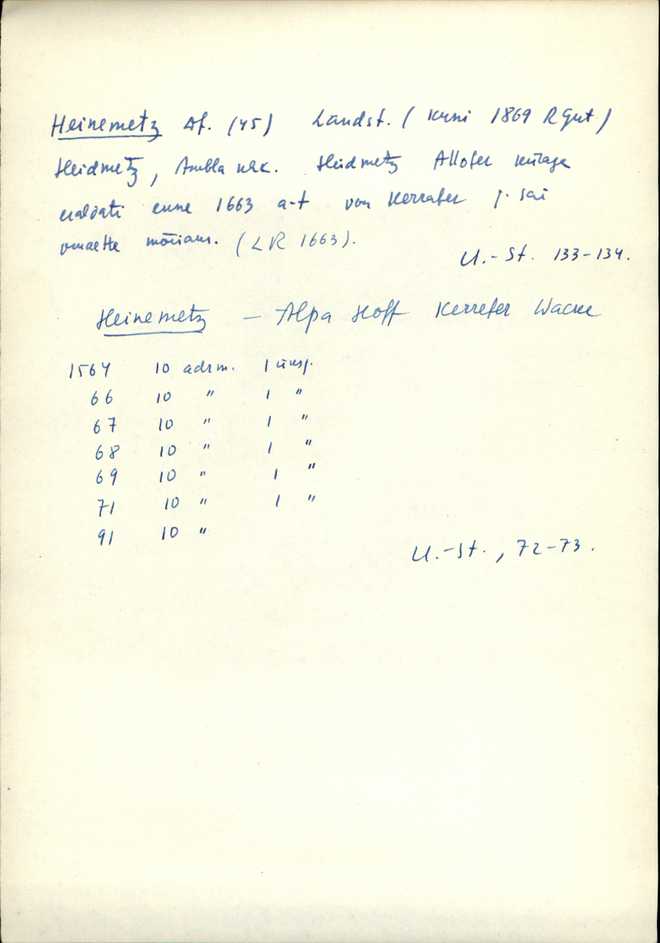 Heinemetz Af. (45) Landst. (kuni 1869 Rgut)
Heidmetz, Ambla khk. Heidmetz Allofer külaga
eraldati enne 1663 a-t von Kerrafer j. sai
omaette mõisaks. (LR 1663).
U.-St. 133-134.
Heinemetz — Alpa Hoff Kerrefer Wacke
1564 10 adrm. 1 üksj.
66 10 " 1 "
67 10 " 1 "
68 10 " 1 "
69 10 " 1 "
71 10 " 1 "
91 10 "
U.-St., 72-73.